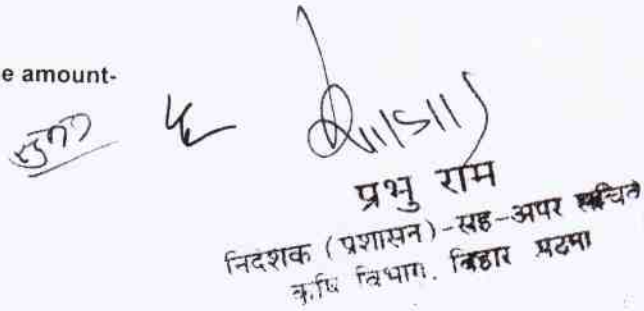 e amount-
प्रभु राम
निदेशक (प्रशासन)-सह-अपर सचिव
कृषि विभाग. बिहार पटना